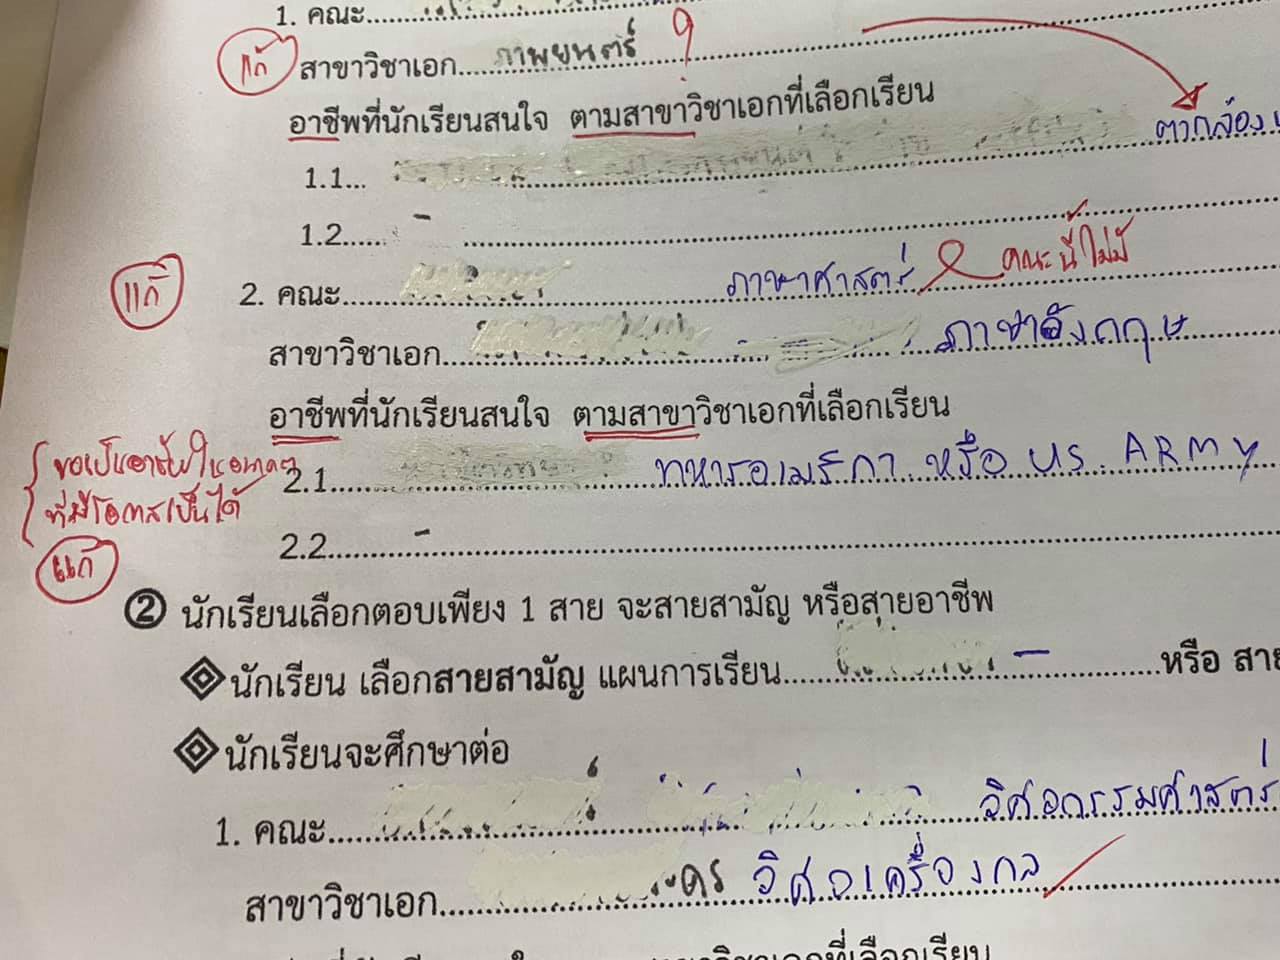 1. คณะ
แก้ สาขาวิชาเอก ภาพยนตร์ ?
อาชีพที่นักเรียนสนใจ ตามสาขาวิชาเอกที่เลือกเรียน
1.1 ตากล้อง
1.2 -
แก้ 2. คณะ ภาษาศาสตร์ คณะนี้ไม่มี
สาขาวิชาเอก ภาษาอังกฤษ
อาชีพที่นักเรียนสนใจ ตามสาขาวิชาเอกที่เลือกเรียน
ขอเป็นอาชีพในอนาคต
2.1 ทหารอเมริกา หรือ US ARMY
ที่มีโอกาสเป็นได้
2.2 -
แก้
② นักเรียนเลือกตอบเพียง 1 สาย จะสายสามัญ หรือสายอาชีพ
นักเรียน เลือกสายสามัญ แผนการเรียน - หรือ สาย
นักเรียนจะศึกษาต่อ
1. คณะ วิศวกรรมศาสตร์
สาขาวิชาเอก วิศวเครื่องกล
วิชาเอกที่เลือกเรียน